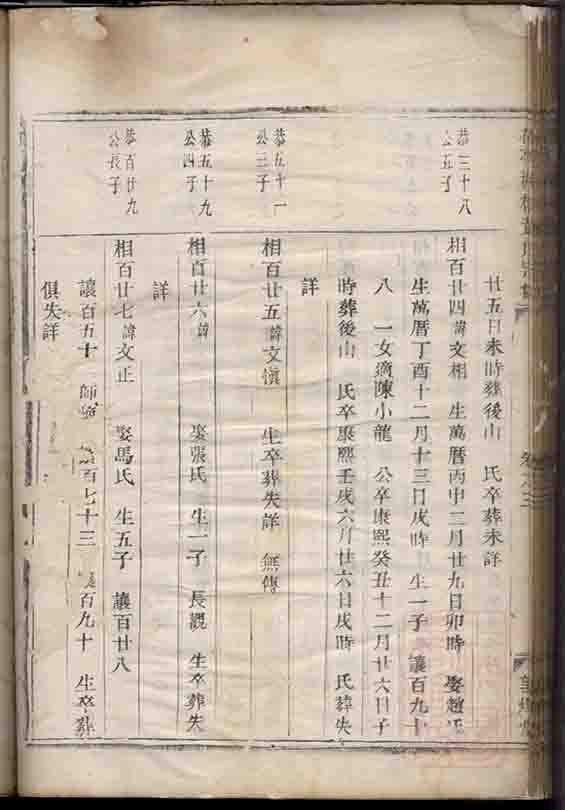 廿五日未時葬後山 氏卒葬未詳
恭三十八
公五子
相百廿四諱文相 生萬曆丙申二月廿九日卯時 娶趙氏
生萬曆丁酉十二月十三日戌時 生一子 讓百九十
八 一女適陳小龍 公卒康熙癸丑十二月廿六日子
時葬後山 氏卒康熙壬戌六月廿六日戌時 氏葬失
詳
恭五十一
公三子
相百廿五諱文愼 生卒葬失詳 無傳
恭五十九
公四子
相百廿六諱 娶張氏 生一子 長觀 生卒葬失
詳
恭百廿九
公長子
相百廿七諱文正 娶馬氏 生五子 讓百廿八
讓百五十 師 百七十三 百九十 生卒葬
俱失詳